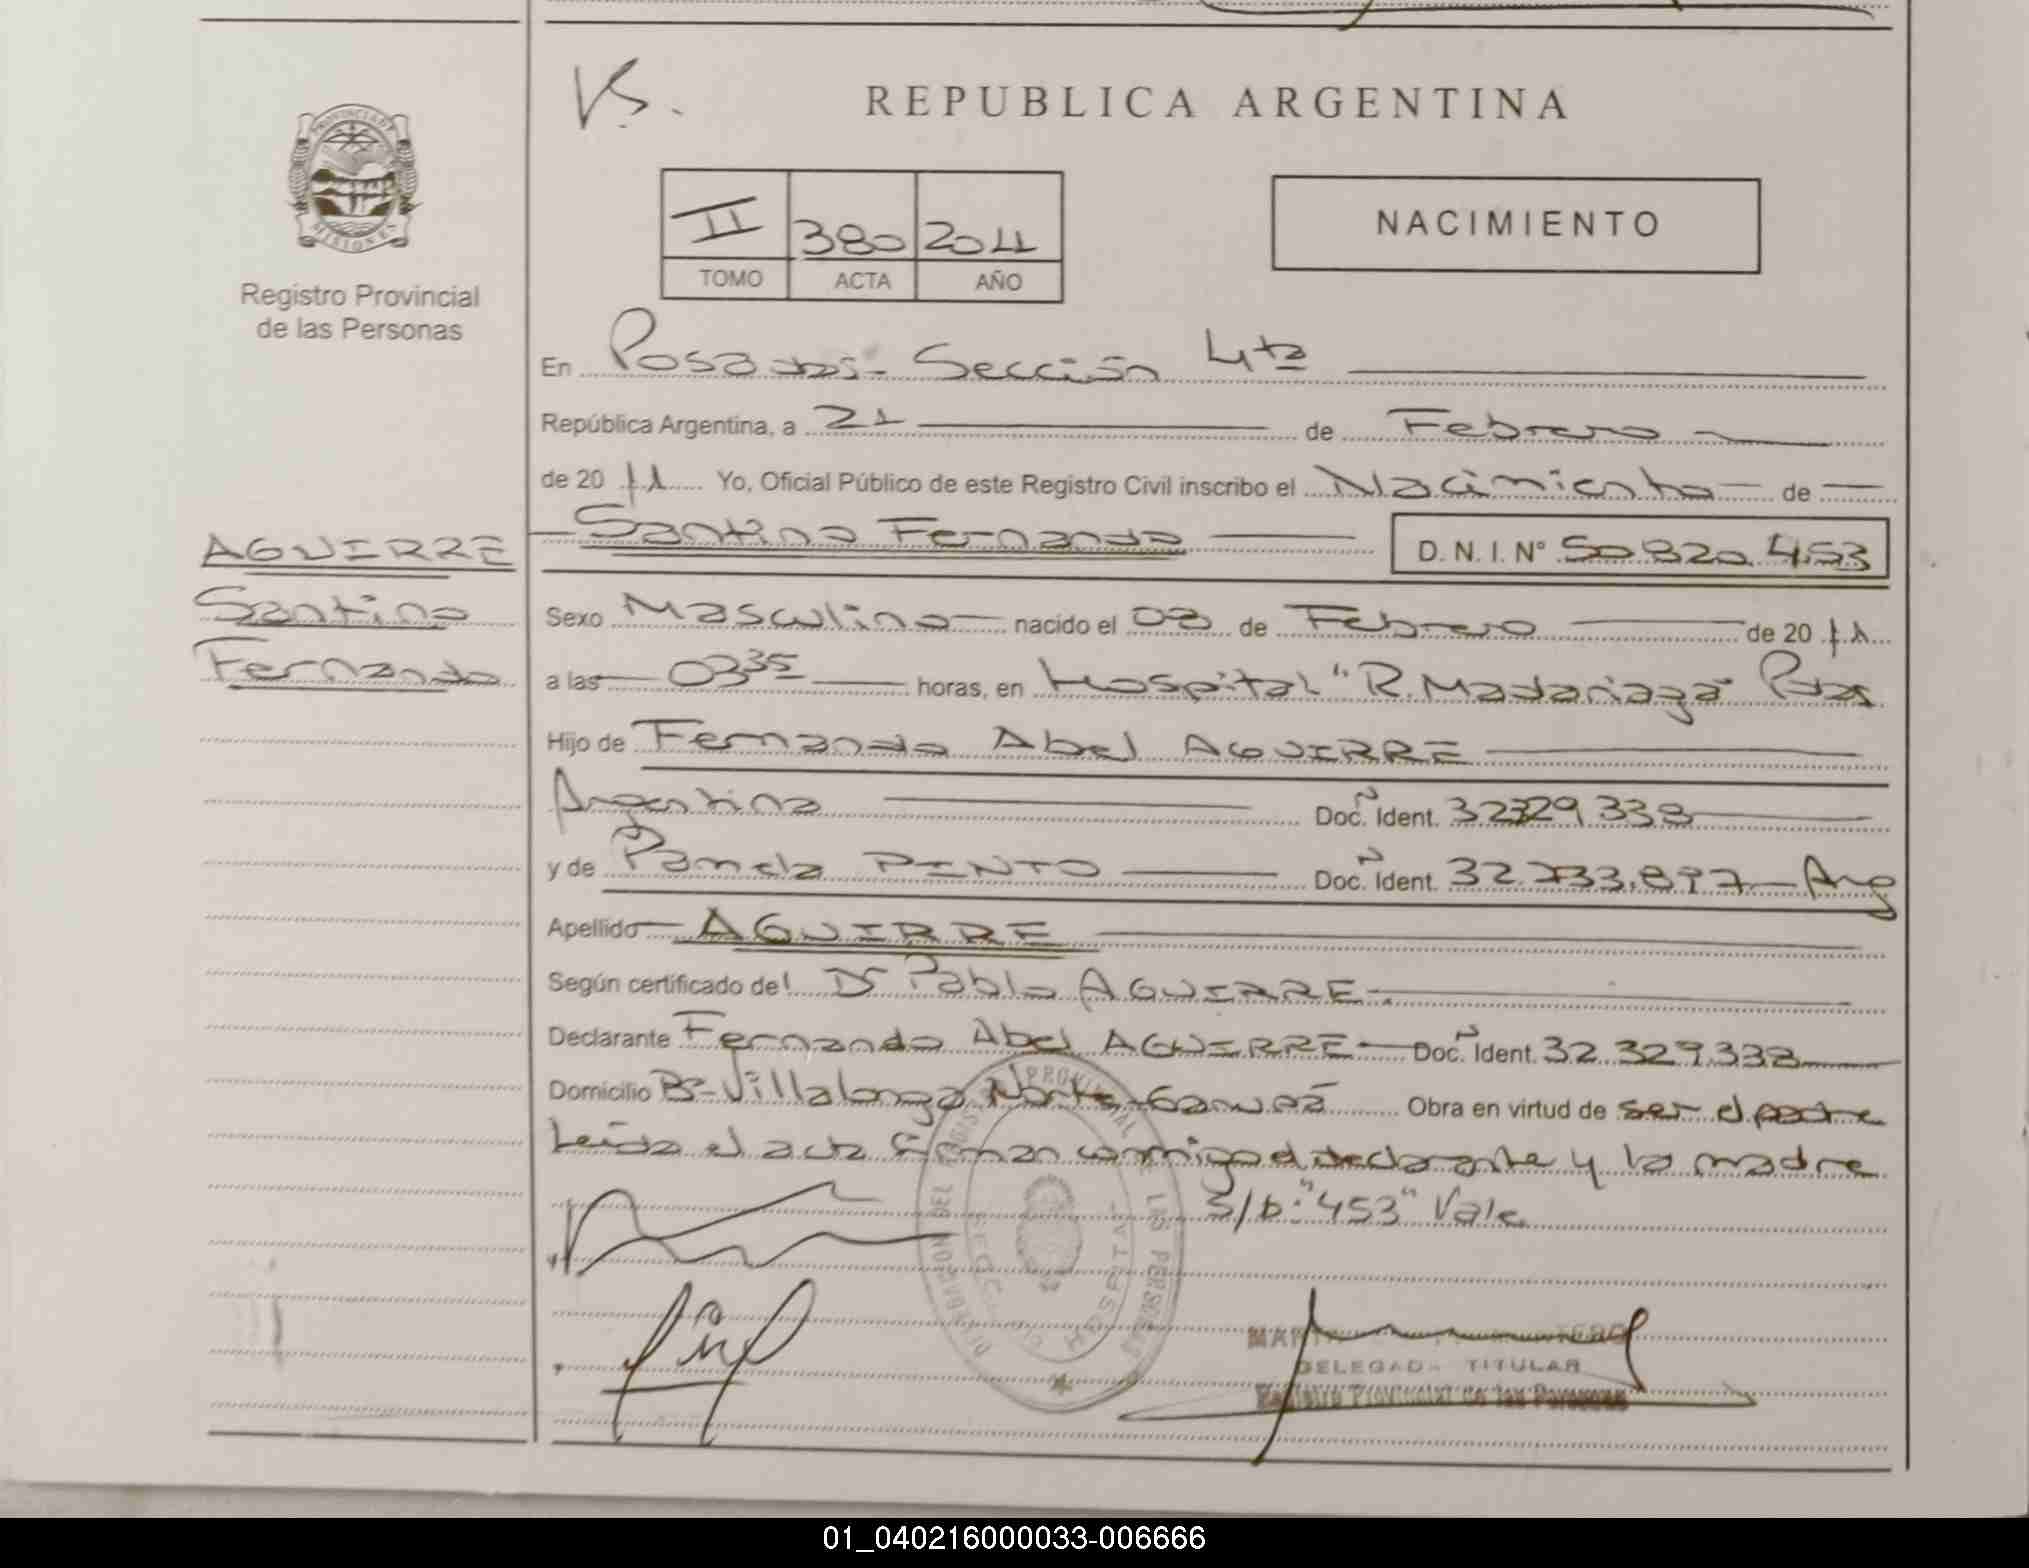 V.S.
REPUBLICA ARGENTINA
PROVINCIA DE MISIONES
Registro Provincial
de las Personas
II 380 2011
TOMO ACTA AÑO
NACIMIENTO
En Posadas - Sección 4ta
República Argentina, a 21 de Febrero
de 20 11 Yo, Oficial Público de este Registro Civil inscribo el Nacimiento de
Santino Fernando D. N. I. N° 50.820.453
AGUIRRE
Santino
Fernando
Sexo Masculino nacido el 08 de Febrero de 20 11
a las 03 35 horas, en Hospital "R. Madariaga" Pdas
Hijo de Fernando Abel AGUIRRE
Argentina Doc. Ident. 32329338
y de Pamela PINTO Doc. Ident. 32.733.897 Arg
Apellido AGUIRRE
Según certificado del Dr Pablo AGUIRRE
Declarante Fernando Abel AGUIRRE Doc. Ident. 32.329.338
Domicilio Bº Villalonga Norte - Garupá Obra en virtud de ser el padre
Leída el acta firman conmigo el declarante y la madre
S/b: "453" Vale
DELEGACION DEL REGISTRO PROVINCIAL DE LAS PERSONAS
HOSPITAL
DELEGADA TITULAR
Registro Provincial de las Personas
01_040216000033-006666